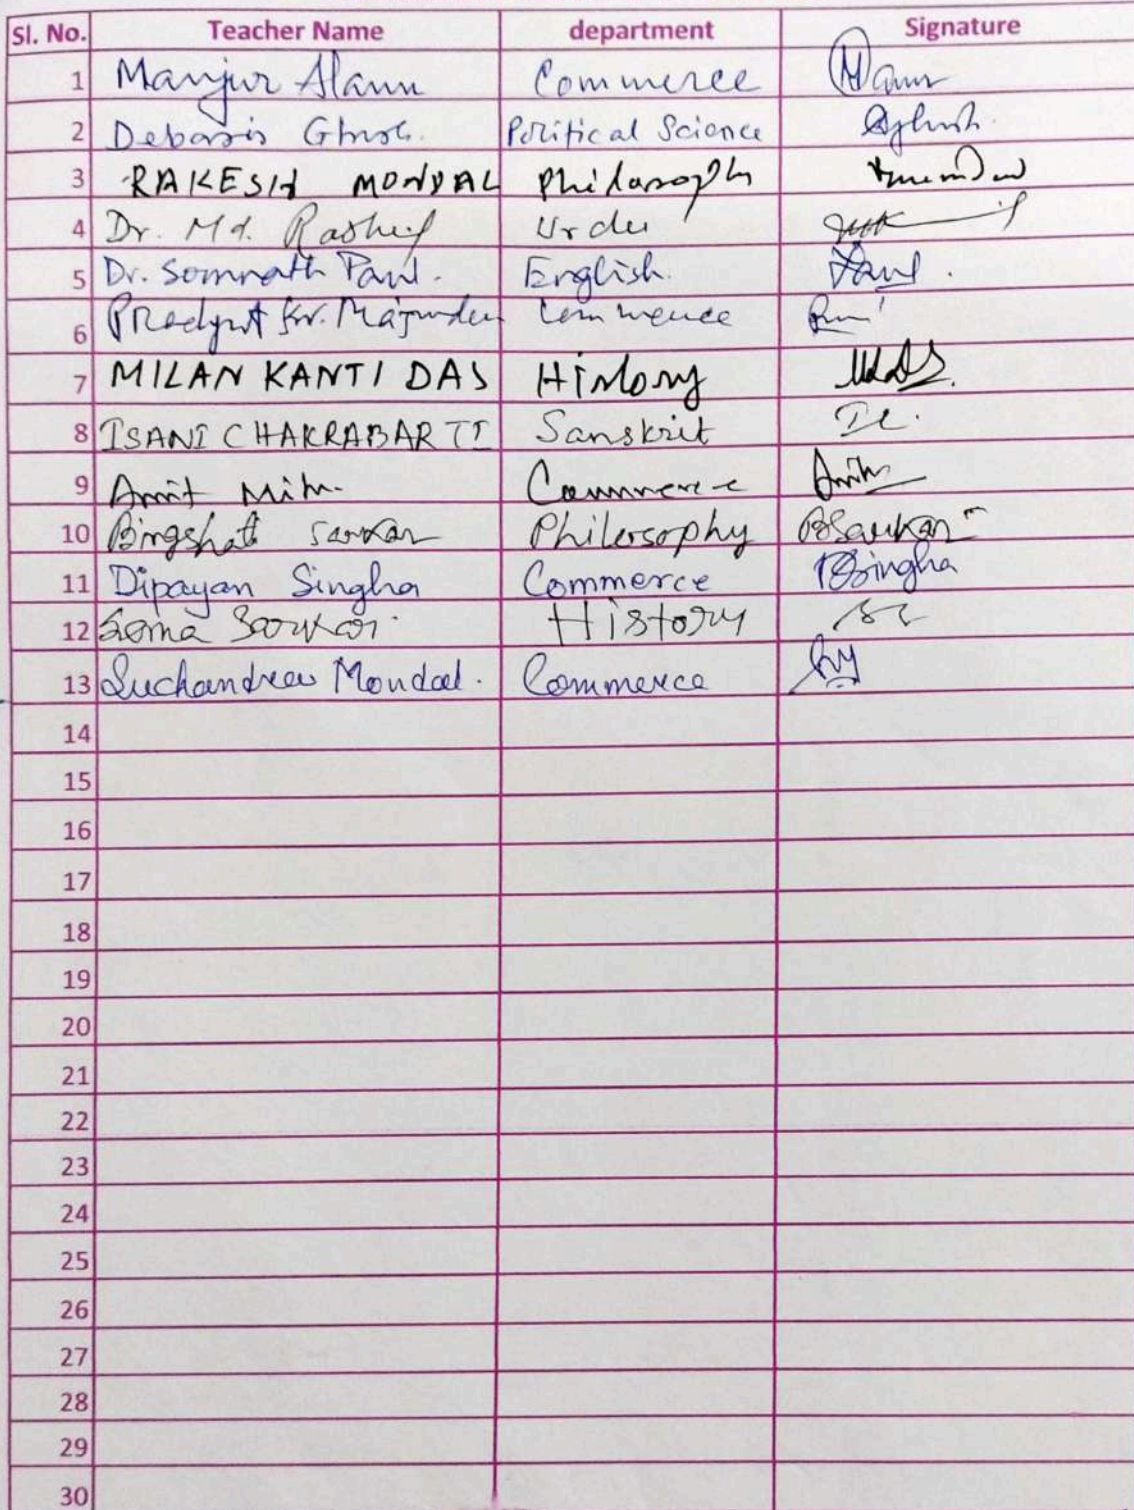 Sl. No. Teacher Name department Signature
1 Manjur Alam Commerce
2 Debasis Ghosh. Political Science
3 RAKESH MONDAL Philosophy
4 Dr. Md. Rashid Urdu
5 Dr. Somnath Paul. English. Paul.
6 Pradyut Kr. Majumder Commerce
7 MILAN KANTI DAS History
8 ISANI CHAKRABARTI Sanskrit IC.
9 Amit Commerce
10 Sarkar Philosophy BSarkar
11 Dipayan Singha Commerce DSingha
12 Soma Sarkar History
13 Suchandra Mondal. Commerce
14
15
16
17
18
19
20
21
22
23
24
25
26
27
28
29
30